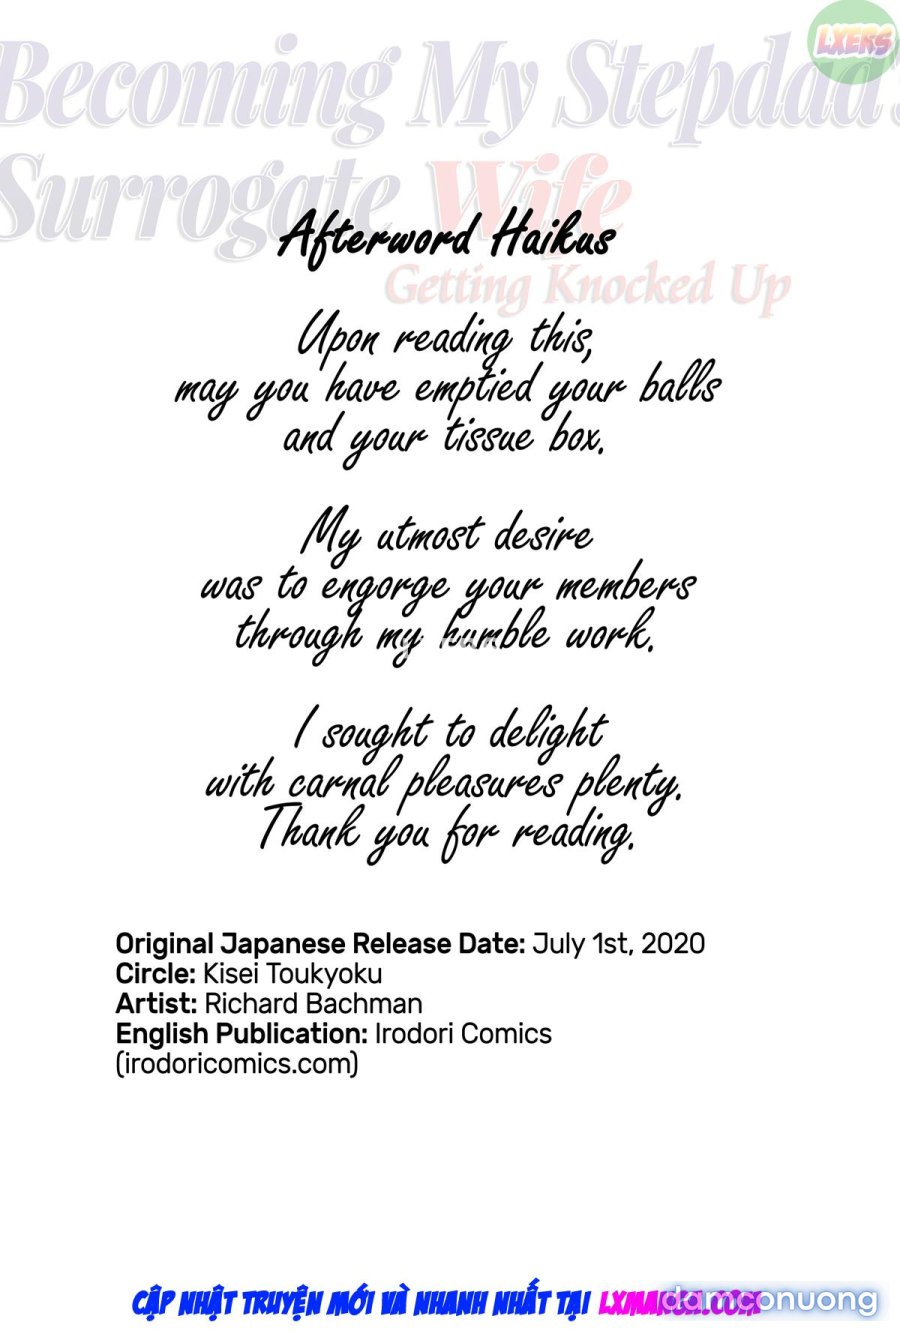 LXERS
Becoming My Stepdad's
Surrogate Wife
Afterword Haikus
Getting Knocked Up
Upon reading this,
may you have emptied your balls
and your tissue box.
My utmost desire
was to engorge your members
through my humble work.
I sought to delight
with carnal pleasures plenty.
Thank you for reading.
Original Japanese Release Date: July 1st, 2020
Circle: Kisei Toukyoku
Artist: Richard Bachman
English Publication: Irodori Comics
(irodoricomics.com)
CẬP NHẬT TRUYỆN MỚI VÀ NHANH NHẤT TẠI LXMANGA.COM
damconuong